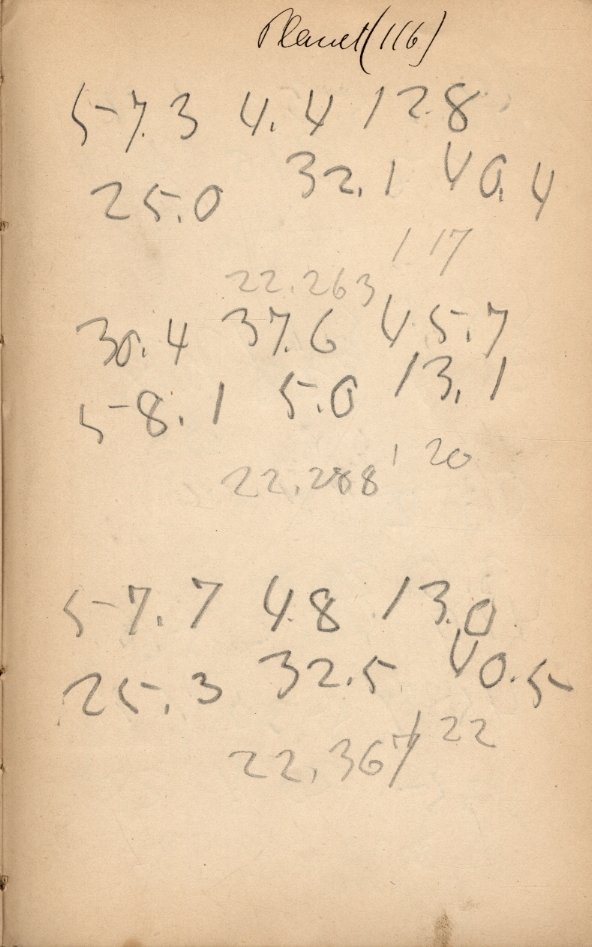 Planet (116)
57.3 4.4 12.8
25.0 32.1 40.4
1 17
22.263
30.4 37.6 45.7
58.1 5.0 13.1
1 20
22.288
57.7 4.8 13.0
25.3 32.5 40.5
1 22
22.367